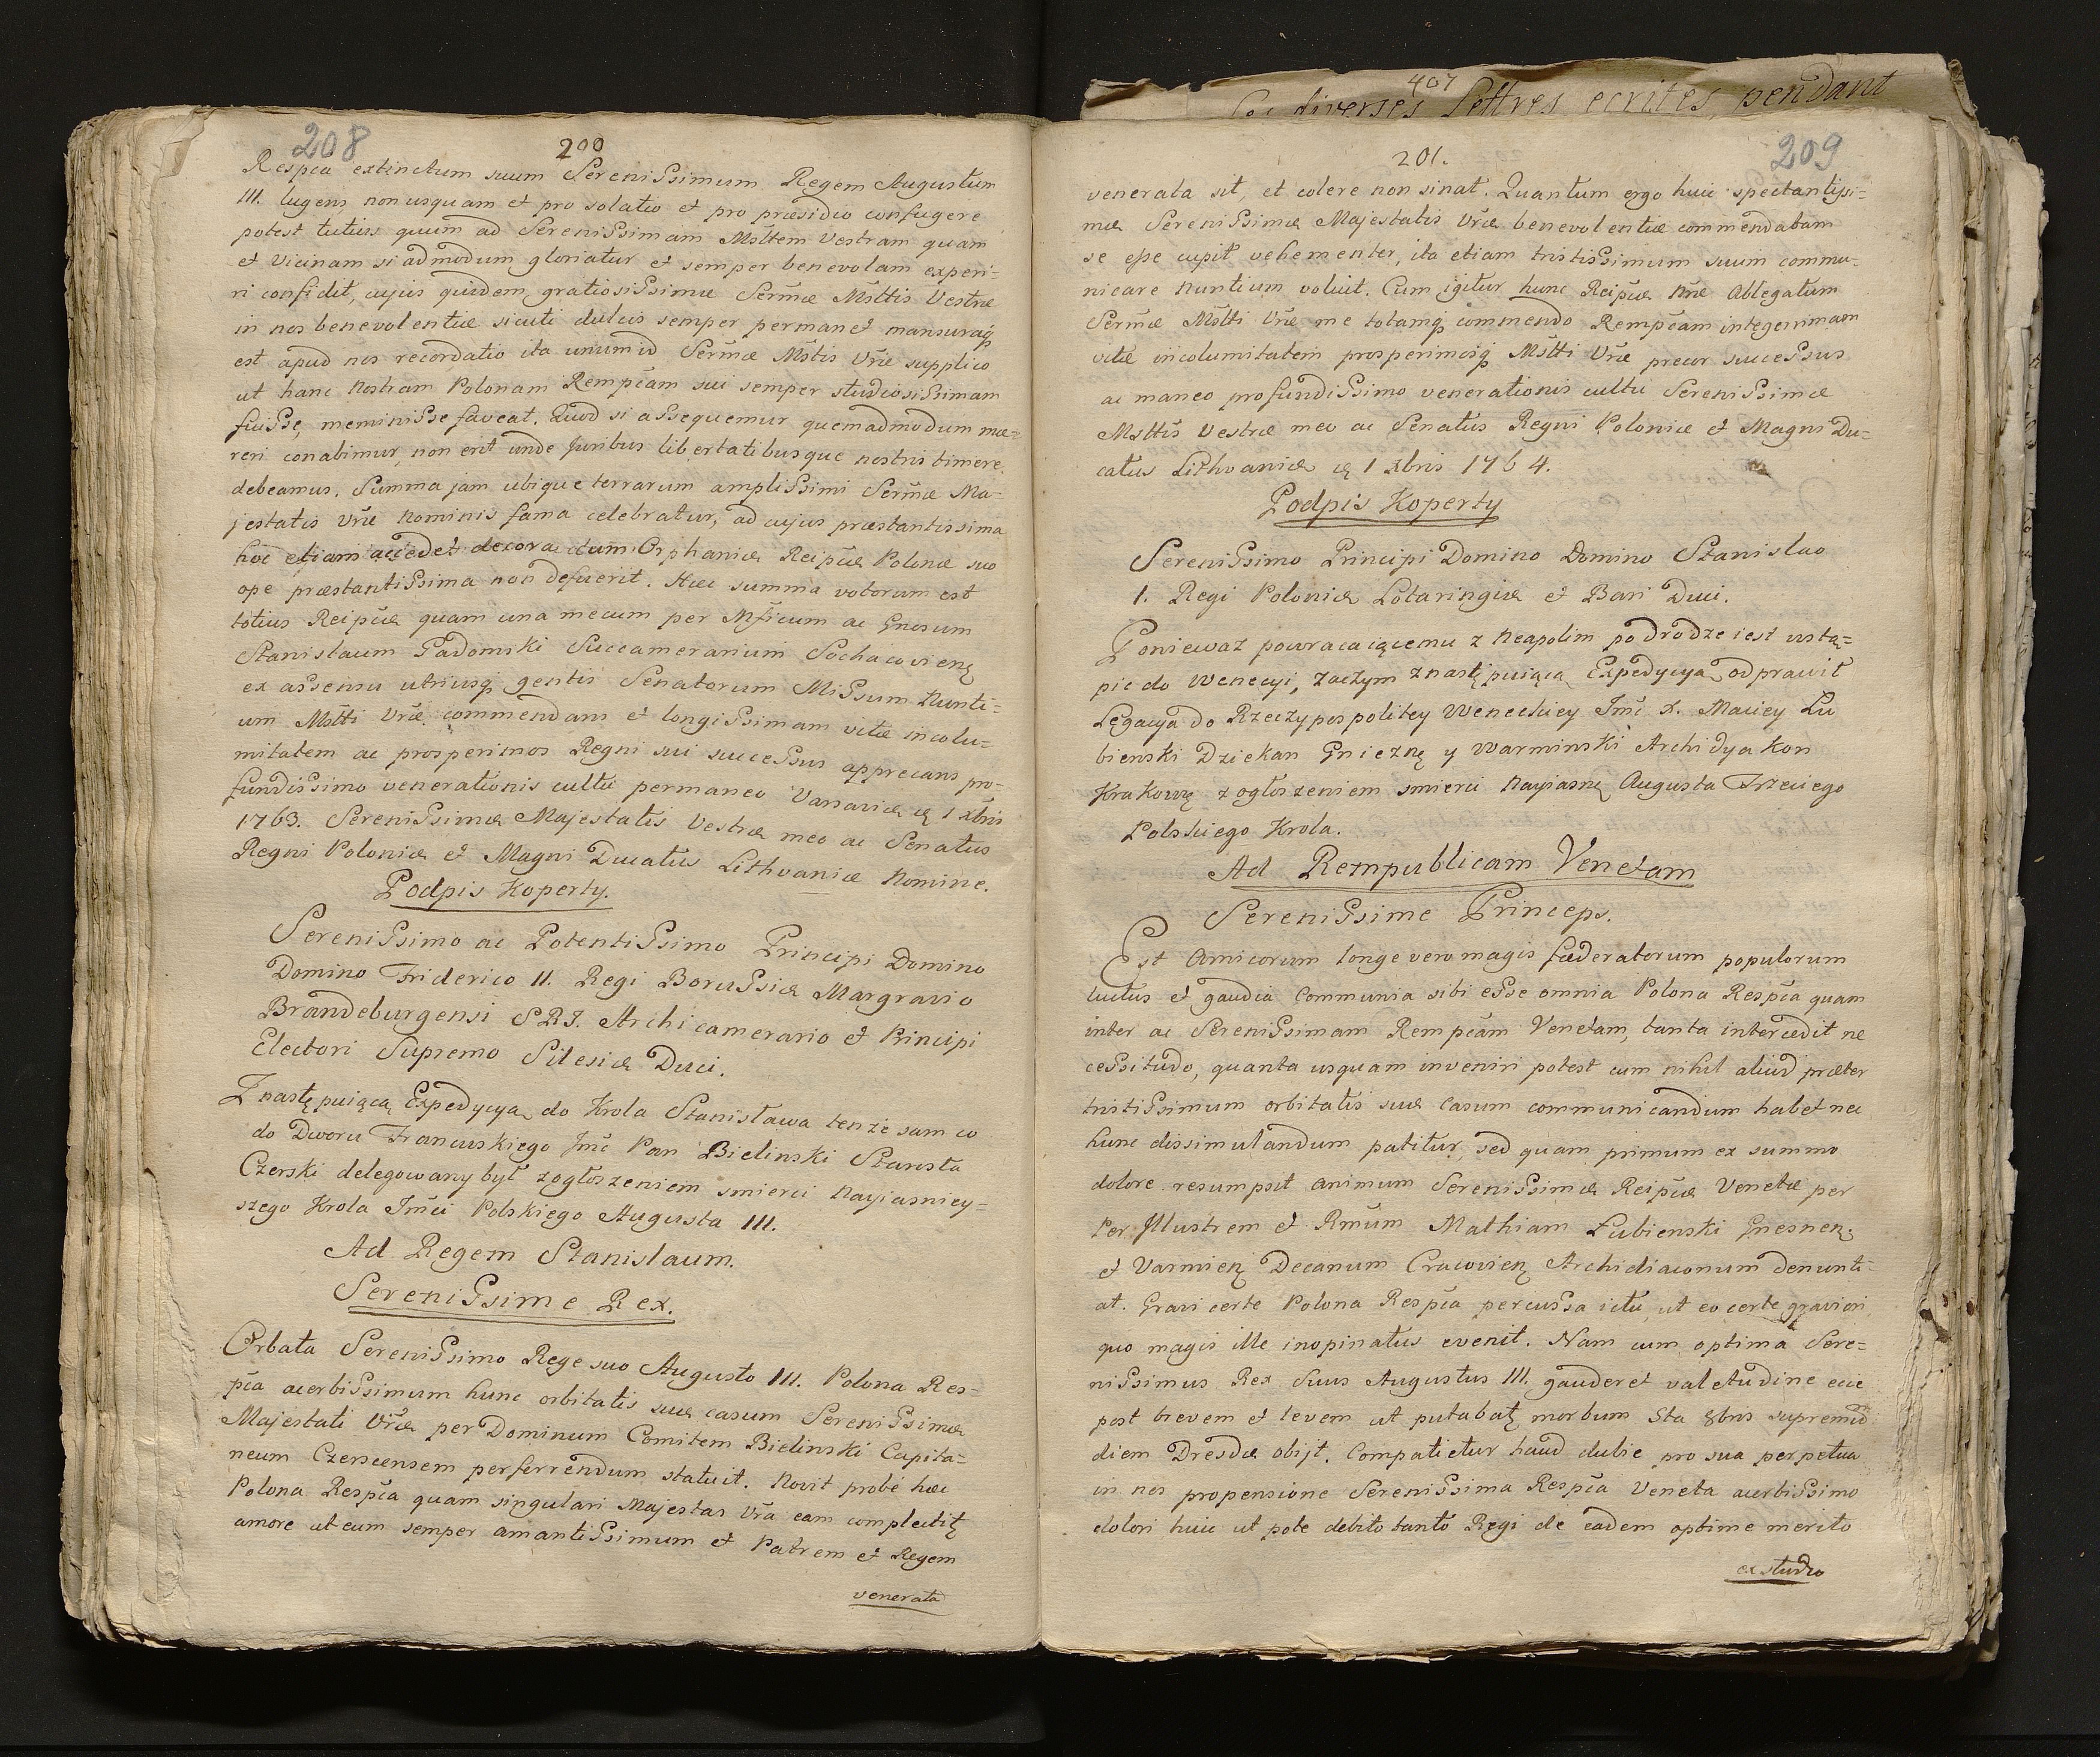 208
200
Respča extinctum suum Serenissimum Regem Augustum
III. lugens, non usquam et pro solatio et pro præsidio confugere
potest tutius quum ad Serenissimam Msttem Vestram quam
et Vicinam si admodum gloriatur et semper benevolam experi=
ri confidit, cujus quidem gratiosissimæ Serm̃æ Msttis Vestræ
in nos benevolentiæ sicuti dulcis semper permanet mansuraq̨
est apud nos recordatio ita unum id Serm̃æ Msttis Vr̃æ supplico
ut hanc Nostram Polonam Rempčam sui semper studiosissimam
fuisse, meminisse faveat. Quod si assequemur quemadmodum mæ=
reri conabimur, non erit unde Juribus libertatibusque nostris timere
debeamus. Summa jam ubique terrarum amplissimi Serm̃æ Ma=
jestatis Vr̃æ Nominis fama celebratur, ad cujus præstantissima
hoc etiam accedet decora dum Orphanæ Reipčæ Polonæ suo
ope præstantissima non defuerit. Hæc summa votorum est
totius Reipčæ quam una mecum per Mficum ac Gnosum
Stanislaum Padomski Succamerarium Sochacovienę
ex assensu utriusq̨ gentis Senatorum Missum Nunti=
um Mstti Vr̃æ commendans et longissimam vitæ incolu=
mitatem ac prosperimos Regni sui successus apprecans pro=
fundissimo venerationis cultu permaneo Varsaviæ ą 1 xbris
1763. Serenissimæ Majestatis Vestræ meo ac Senatus
Regni Poloniæ et Magni Ducatus Lithvaniæ Nomine.
Podpis Koperty.
Serenissimo ac Potentissimo Principi Domino
Domino Friderico II. Regi Borussiæ Margravio
Brandeburgensi S R I. Archicamerario et Principi
Electori Supremo Silesiæ Duci.
Z następuiącą Expedycyą do Krola Stanisława tenże sam co
do Dworu Francuskiego Jmć Pan Bielinski Starosta
Czerski delegowany był z ogłoszeniem smierci Nayiasniey=
szego Krola Jmći Polskiego Augusta III.
Ad Regem Stanislaum.
Serenissime Rex.
Orbata Serenissimo Rege suo Augusto III. Polona Res=
pča acerbissimum hunc orbitatis suæ casum Serenissimæ
Majestati Vr̃æ per Dominum Comitem Bielinski Capita=
neum Czerscensem perferrendum statuit. Novit probé hæc
Polona Respča quam singulari Majestas Vr̃a eam complectitę
amore ut eum semper amantissimum et Patrem et Regem
venerata
407
diverses Lettres ecrites, pendant
201.
209
venerata sit, et colere non sinat. Quantum ergo huic spectantissi=
mæ Serenissimæ Majestatis Vr̃æ benevolentiæ commendatam
se esse cupit vehementer, ita etiam tristissimum suum commu=
nicare Nuntium voluit. Cum igitur hunc Reipčæ Nr̃æ Ablegatum
Serm̃æ Mstti Vr̃æ me totamq̨ commendo Rempčam integerrimam
vitæ incolumitatem prosperimosq̨ Mstti Vr̃æ precor successus
ac maneo profundissimo venerationis cultu Serenissimæ
Msttis Vestræ meo ac Senatus Regni Poloniæ et Magni Du=
catus Lithvaniæ ą 1 xbris 1764.
Podpis Koperty
Serenissimo Principi Domino Domino Stanislao
1. Regi Poloniæ Lotaringiæ et Bari Duci.
Poniewaz powracaiącemu z Neapolim po drodze iest ustą=
pic do Wenecyi, zaczym z następuiącą Expedycyą odprawił
Legacya do Rzeczypospolitey Weneckiey Jmć X. Maciey Łu
bienski Dziekan Gnieznę y Warminski Archidyakon
Krakowę z ogłoszeniem smierci Nayiasnę Augusta Trzeciego
Polskiego Krola.
Ad Rempublicam Venetam
Serenissime Princeps.
Est Amicorum longe vero magis fæderatorum populorum
luctus et gaudia Communia sibi esse omnia Polona Respča quam
inter ac Serenissimam Rempčam Venetam, tanta intercedit ne
cessitudo, quanta usquam inveniri potest cum nihil aliud præter
tristissimum orbitatis suæ Casum communicandum habet nec
hunc dissimulandum patitur, sed quam primum ex summo
dolore resumpsit animum Serenissimæ Reipčæ Venetæ per
Per Jllustrem et Rmūm Mathiam Łubienski Gnesnenę
et Varmienę Decanum Cracovienę Archidiaconum denunti=
at. Gravi certe Polona Respča percussa ictu, ut eo certe graviori
quo magis ille inopinatus evenit. Nam cum optima Sere=
nissimus Rex Suus Augustus III. gauderet valetudine ecce
post brevem et levem ut putabatę morbum 5ta 8bris supremū
diem Dresdæ obijt. Compatietur haud dubie pro sua perpetua
in nos propensione Serenissima Respča Veneta acerbissimo
dolori huic ut pote debito tanto Regi de eadem optime merito
ex studio